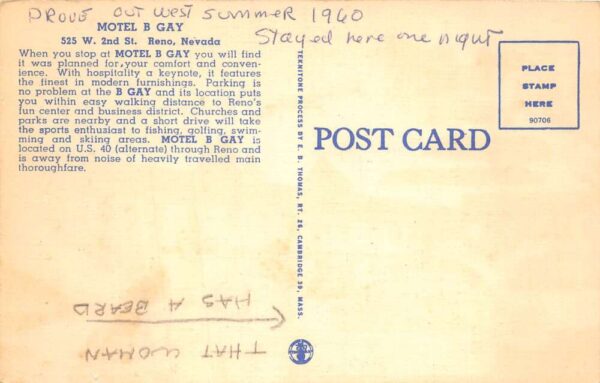 DROVE OUT WEST SUMMER 1960
Stayed here one night
MOTEL B GAY
525 W. 2nd St. Reno, Nevada
When you stop at MOTEL B GAY you will find
it was planned for your comfort and conven-
ience. With hospitality a keynote, it features
the finest in modern furnishings. Parking is
no problem at the B GAY and its location puts
you within easy walking distance to Reno's
fun center and business district. Churches and
parks are nearby and a short drive will take
the sports enthusiast to fishing, golfing, swim-
ming and skiing areas. MOTEL B GAY is
located on U.S. 40 (alternate) through Reno and
is away from noise of heavily travelled main
thoroughfare.
TEKNITONE PROCESS BY E. B. THOMAS, RT. 26, CAMBRIDGE 39, MASS.
POST CARD
PLACE
STAMP
HERE
90706
THAT WOMAN
HAS A BEARD